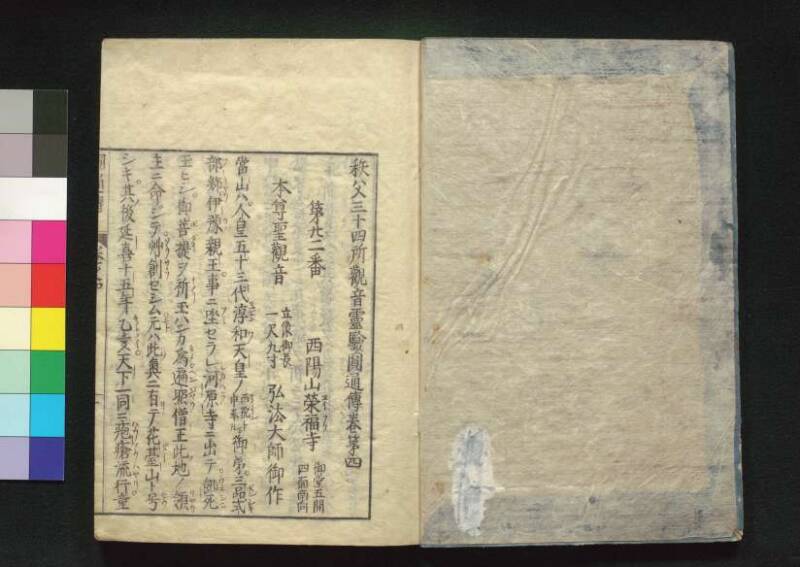 秩父三十四所觀音靈驗圓通傳卷第四
第廿二番 西陽山榮福寺 御堂五間四面南向
本尊聖觀音 立像御長一尺九寸 弘法大師御作
當山ハ人皇五十三代淳和天皇ノ御弟三品式
部卿伊豫親王事ニ坐セラレ河原寺ニ出テ餓死
玉ヒシ御菩提ヲ祈玉ハンカ為遍照僧正此地ノ領
主ニ命シテ艸創セシム元ハ此奥ニ有テ花臺山ト号
シキ其後延喜十五年乙亥天下一同ニ疱瘡流行童